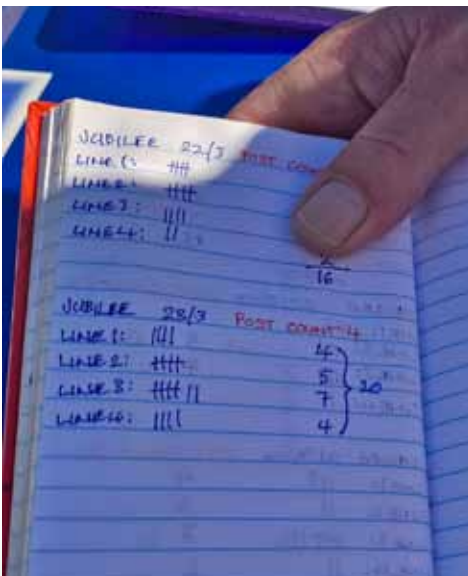 JUBILEE 22/3 POST COU
LINE 1: 卌
LINE 2: 卌
LINE 3: ||||
LINE 4: ||
2
16
JUBILEE 23/3 POST COUNT: 4
LINE 1: |||| 4
LINE 2: 卌 5
LINE 3: 卌 || 7
LINE 4: |||| 4
20